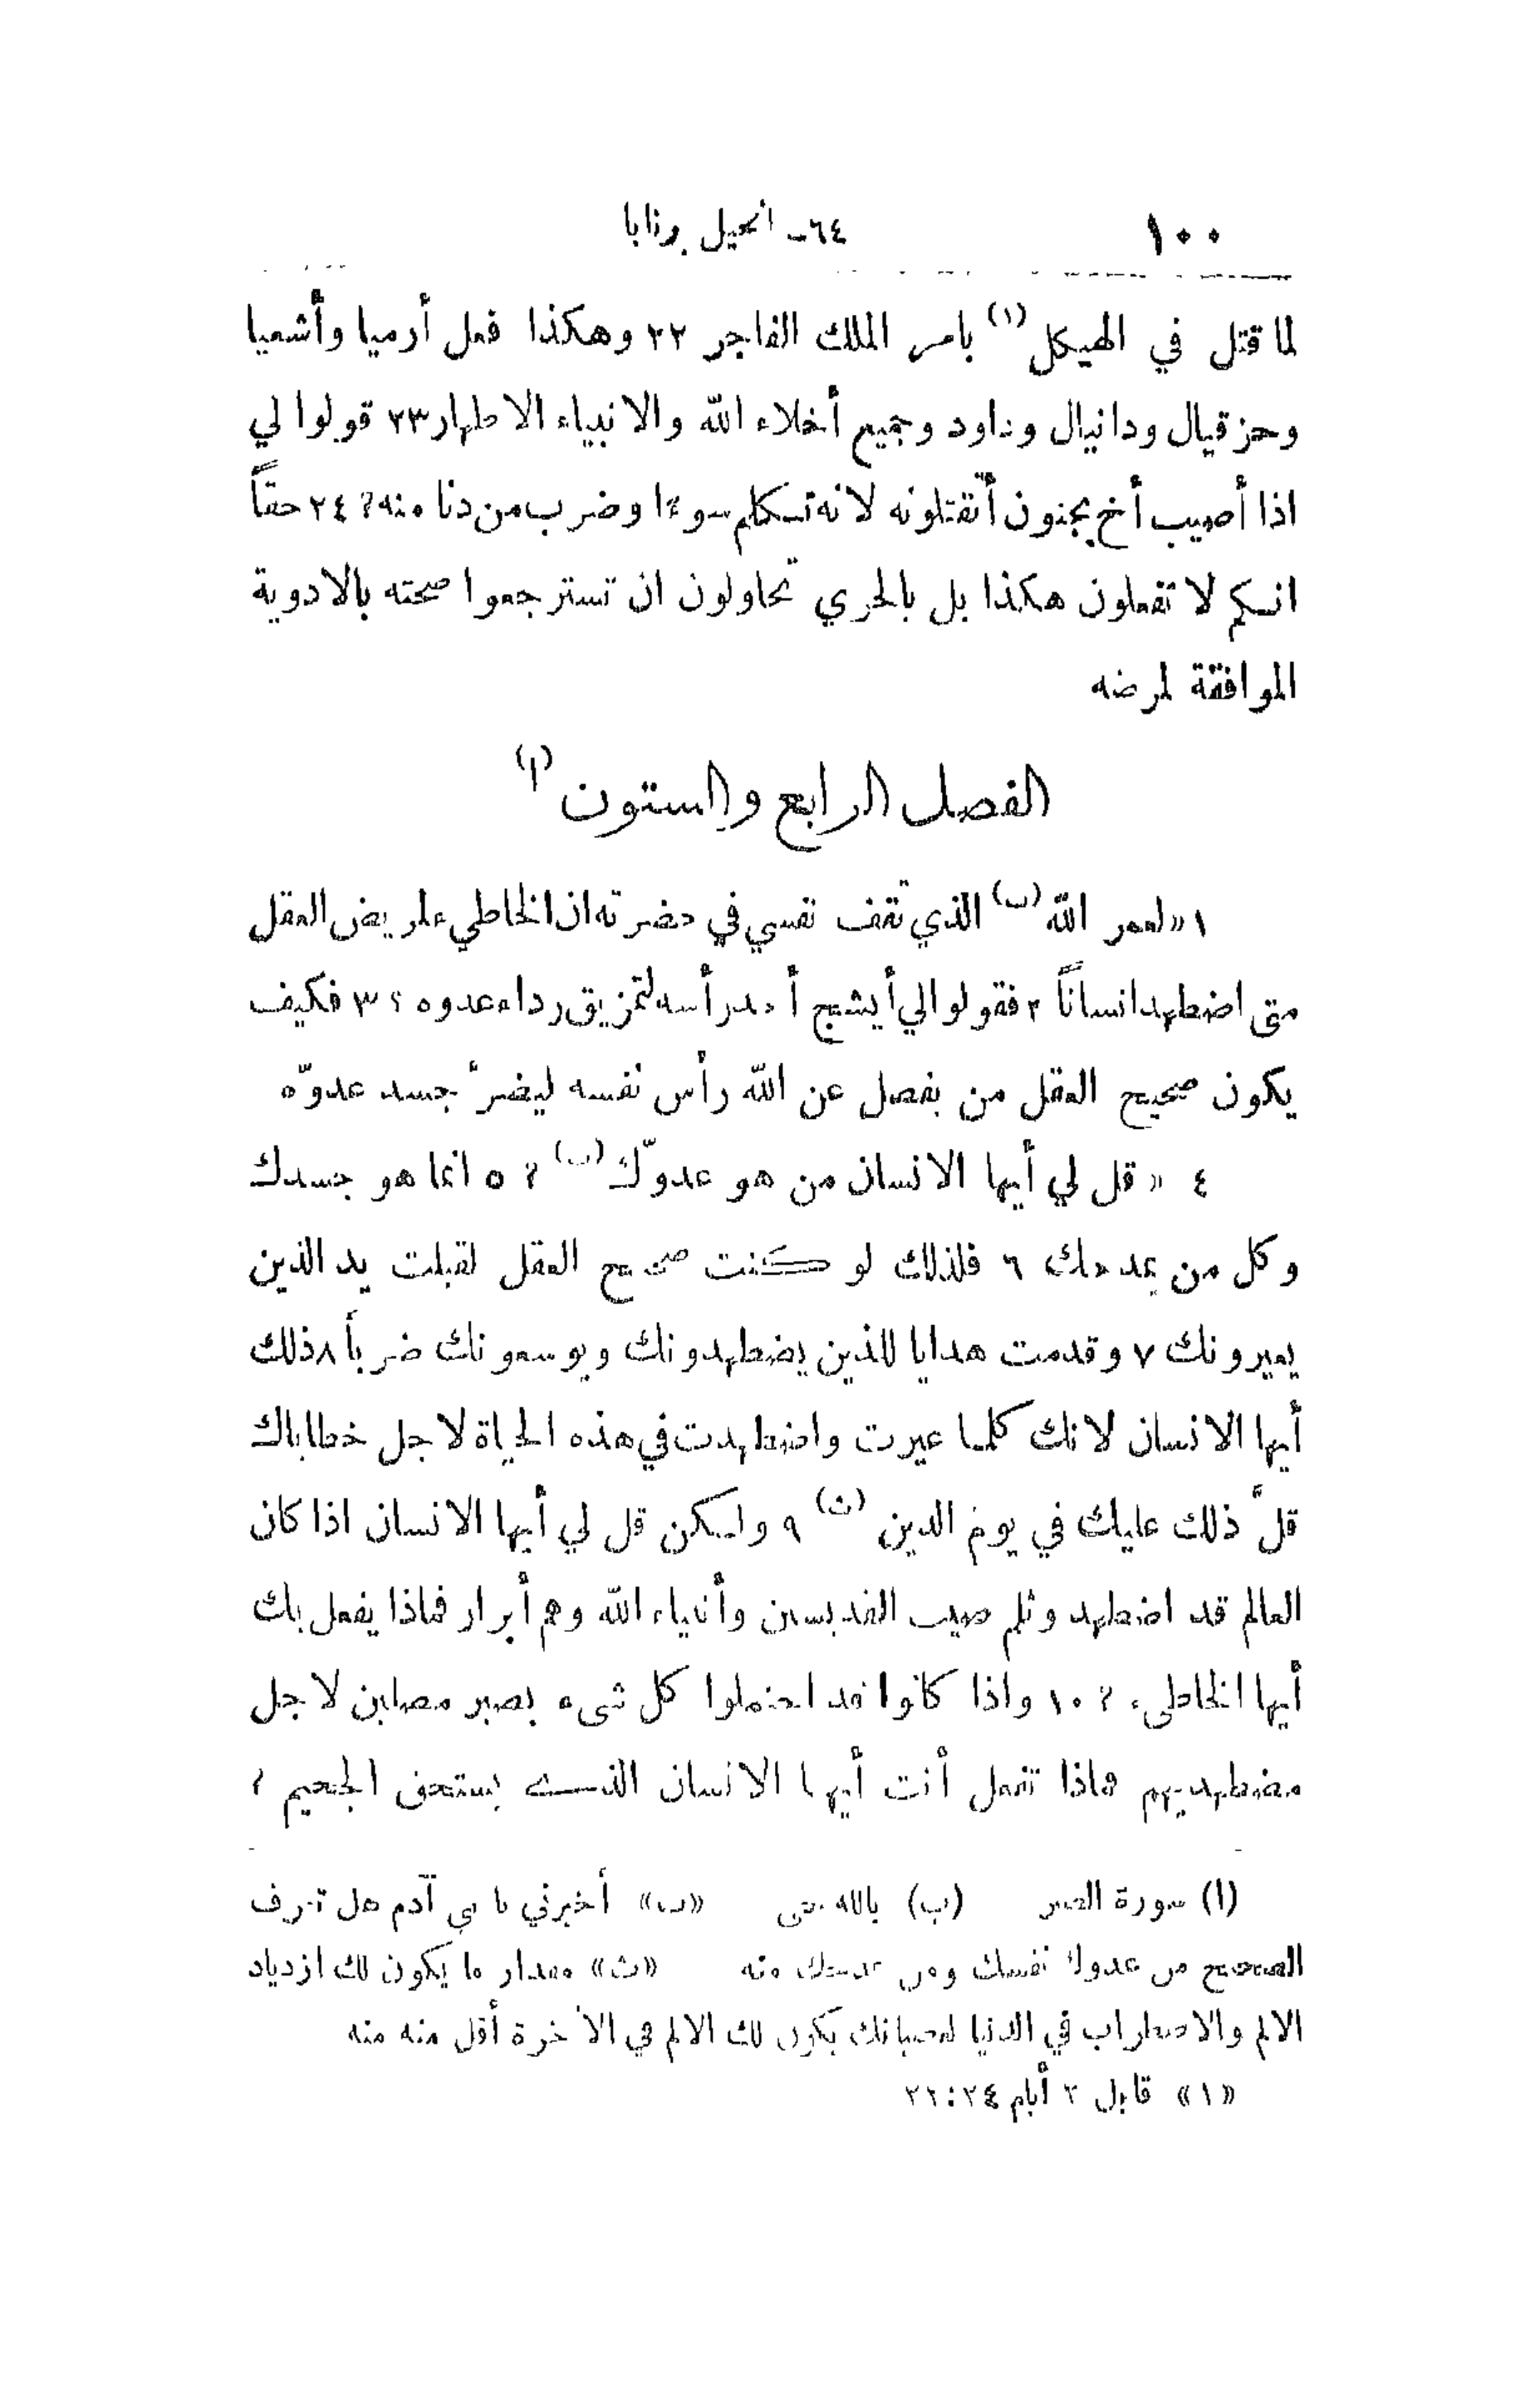 ١٠٠ ٦٤ـ انجيل برنابا
لما قتل في الهيكل (١) بامر الملك الفاجر ٢٢ وهكذا فعل أرميا وأشعيا
وحزقيال ودانيال وداود وجميع أخلاء الله والانبياء الاطهار ٢٣ قولوا لي
اذا أصيب أخ بجنون أتقتلونه لانه تكلم سوءا وضرب من دنا منه؟ ٢٤ حقاً
انكم لا تفعلون هكذا بل بالحري تحاولون ان تسترجعوا صحته بالادوية
الموافقة لمرضه
الفصل الرابع والستون (ا)
١ « لعمر الله (ب) الذي تقف نفسي في حضرته ان الخاطي ء لمريض العقل
متى اضطهد انساناً ٢ فقولوا لي أيشج أحد رأسه لتمزيق رداء عدوه ؟ ٣ فكيف
يكون صحيح العقل من يفصل عن الله رأس نفسه ليضرّ جسد عدوّه
٤ « قل لي أيها الانسان من هو عدوّك (ت) ؟ ٥ انما هو جسدك
وكل من يمدحك ٦ فلذلك لو كنت صحيح العقل لقبلت يد الذين
يعيرونك ٧ وقدمت هدايا للذين يضطهدونك ويوسعونك ضرباً ٨ ذلك
أيها الانسان لانك كلما عيرت واضطهدت في هذه الحياة لاجل خطاياك
قلّ ذلك عليك في يوم الدين (ث) ٩ ولكن قل لي أيها الانسان اذا كان
العالم قد اضطهد وثلم صيت القديسين وأنبياء الله وهم أبرار فماذا يفعل بك
أيها الخاطىء ؟ ١٠ واذا كانوا قد احتملوا كل شيء بصبر مصلين لاجل
مضطهديهم فماذا تفعل أنت أيها الانسان الذي يستحق الجحيم ؟
(ا) سورة الصبر (ب) بالله حي «ت» أخبرني يا بني آدم هل تعرف
الصحيح من عدوك نفسك ومن منه «ث» مقدار ما يكون لك ازدياد
الالم والاضطراب في الدنيا لعصيانك يكون لك الالم في الآخرة أقل منه منه
«١» قابل ٢ أيام ٢٤:٢١